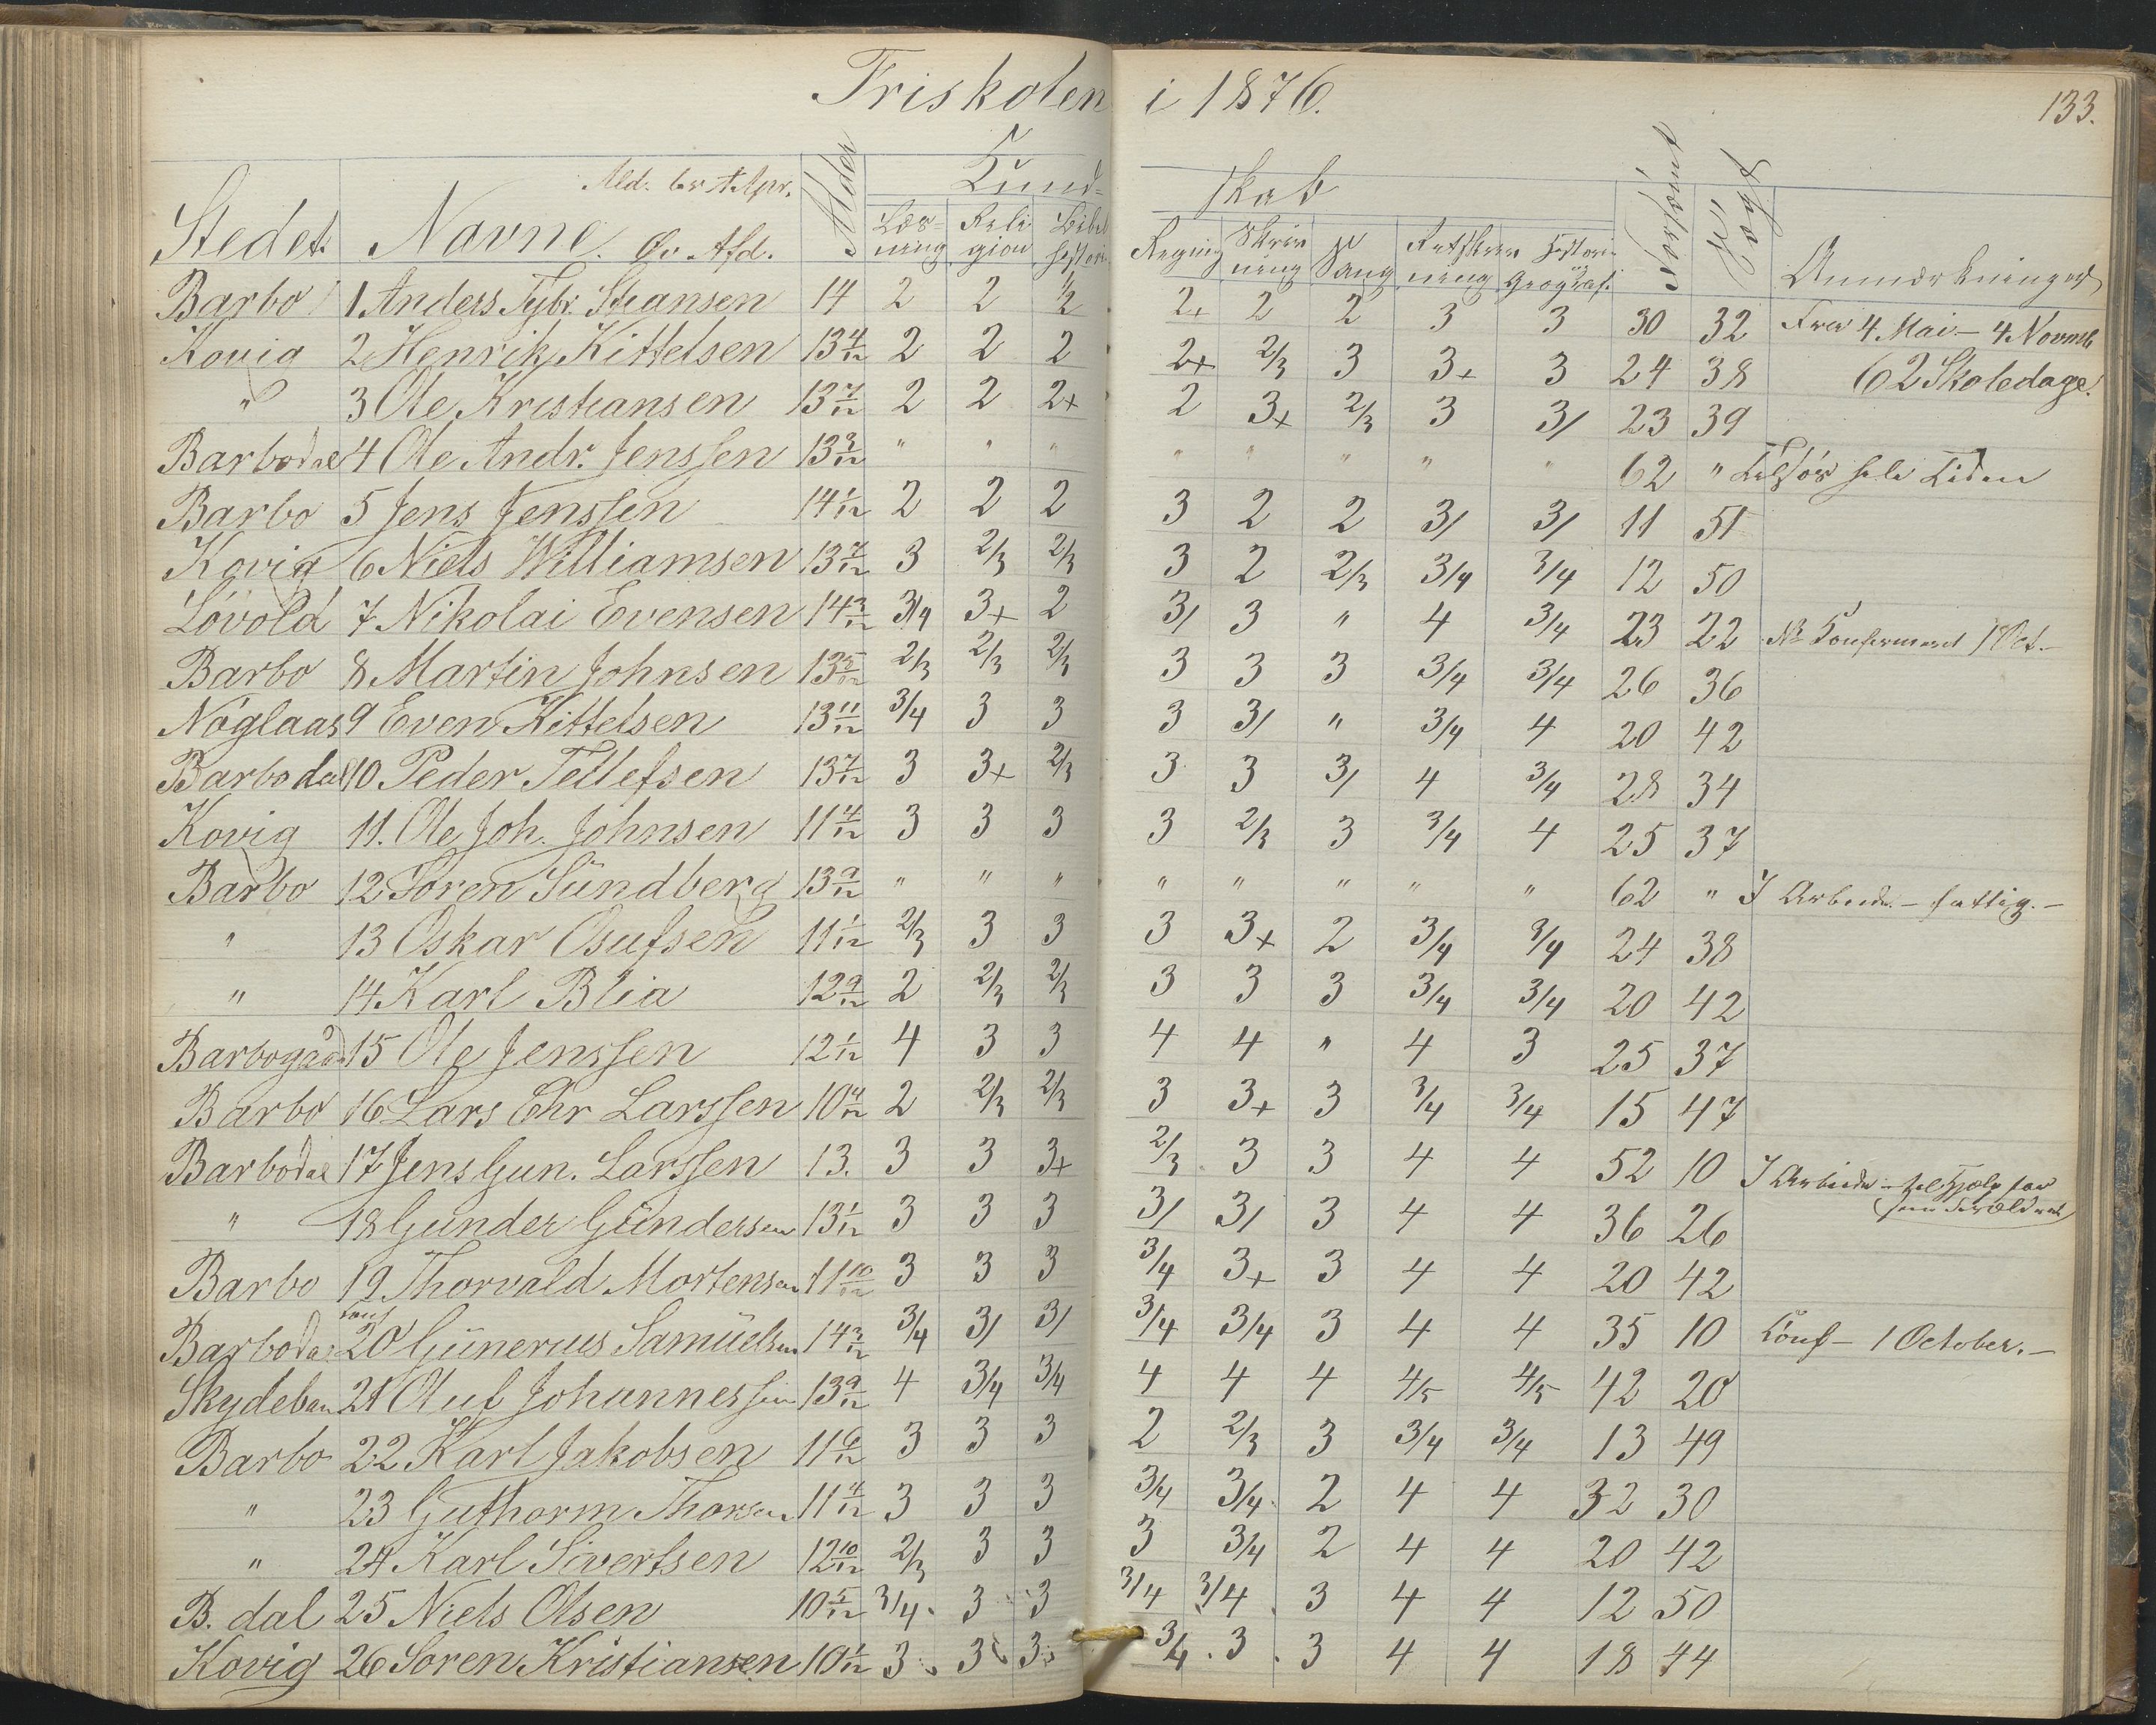 Friskolen i 1876.
133.
Stedet Navne. Øv. Afd. Alder Kundskab Forsømt Anmærkninger
Læsning Religion Bibelhistorie Regning Skrivning Sang Retskrivning Historie Geografi
Barbo 1 Anders Stiansen 14 2 2 1/2 2+ 2 2 3 3 30 32 Fra 4 Mai - 4 Novmb
Kovig 2 Henrik Kittelsen 13 4/12 2 2 2 2+ 2/3 3 3+ 3 24 38 62 Skoledage.
" 3 Ole Kristiansen 13 7/12 2 2 2+ 2 3+ 2/3 3 3/ 23 39
Barbodal 4 Ole Andr. Jenssen 13 3/12 " " " " " " " " 62 " Tilsøs hele Tiden
Barbo 5 Jens Jenssen 14 1/12 2 2 2 3 2 2 3/ 3/ 11 51
Kovig 6 Niels Williamsen 13 7/12 3 2/3 2/3 3 2 2/3 3/4 3/4 12 50
Lövold 7 Nikolai Evensen 14 3/12 3/4 3+ 2 3/ 3 " 4 3/4 23 22 Konfirmert 1 Oct.-
Barbo 8 Martin Johnsen 13 5/12 2/3 2/3 2/3 3 3 3 3/4 3/4 26 36
Nöglaas 9 Even Kittelsen 13 11/12 3/4 3 3 3 3/ " 3/4 4 20 42
Barbodal 10 Peder Tellefsen 13 7/12 3 3+ 2/3 3 3 3/ 4 3/4 28 34
Kovig 11. Ole Joh. Johnsen 11 4/12 3 3 3 3 2/3 3 3/4 4 25 37
Barbo 12 Sören Sündberg 13 9/12 " " " " " " " " 62 " I Arbeide - fattig. -
" 13 Oskar Osufsen 11 1/12 2/3 3 3 3 3+ 2 3/4 3/4 24 38
" 14 Karl Blia 12 9/12 2 2/3 2/3 3 3 3 3/4 3/4 20 42
Barbogaard 15 Ole Jenssen 12 1/12 4 3 3 4 4 " 4 3 25 37
Barbo 16 Lars Chr Larssen 10 4/12 2 2/3 2/3 3 3+ 3 3/4 3/4 15 47
Barbodal 17 Jens Gun. Larssen 13. 3 3 3+ 2/3 3 3 4 4 52 10 I Arbeide - til Hjælp for
" 18 Gunder Gündersen 13 1/12 3 3 3 3/ 3/ 3 4 4 36 26 sine Forældre
Barbo 19 Thorvald Mortensen 11 10/12 3 3 3 3/4 3+ 3 4 4 20 42
Barbodal 20 Günerius Samüelsen 14 3/12 3/4 3/ 3/ 3/4 3/4 3 4 4 35 10 Konf - 1 October. -
Skydeban 21 Oluf Johannessen 13 9/12 4 3/4 3/4 4 4 4 4/5 4/5 42 20
Barbo 22 Karl Jakobsen 11 6/12 3 3 3 2 2/3 3 3/4 3/4 13 49
" 23 Guthorm Thorsen 11 4/12 3 3 3 3/4 3/4 2 4 4 32 30
" 24 Karl Sivertsen 12 10/12 2/3 3 3 3 3/4 2 4 4 20 42
B. dal 25 Niels Olsen 10 5/12 3/4 3 3 3/4 3/4 3 4 4 12 50
Kovig 26 Sören Kristiansen 10 1/12 3 3 3 3/4 3 3 4 4 18 44